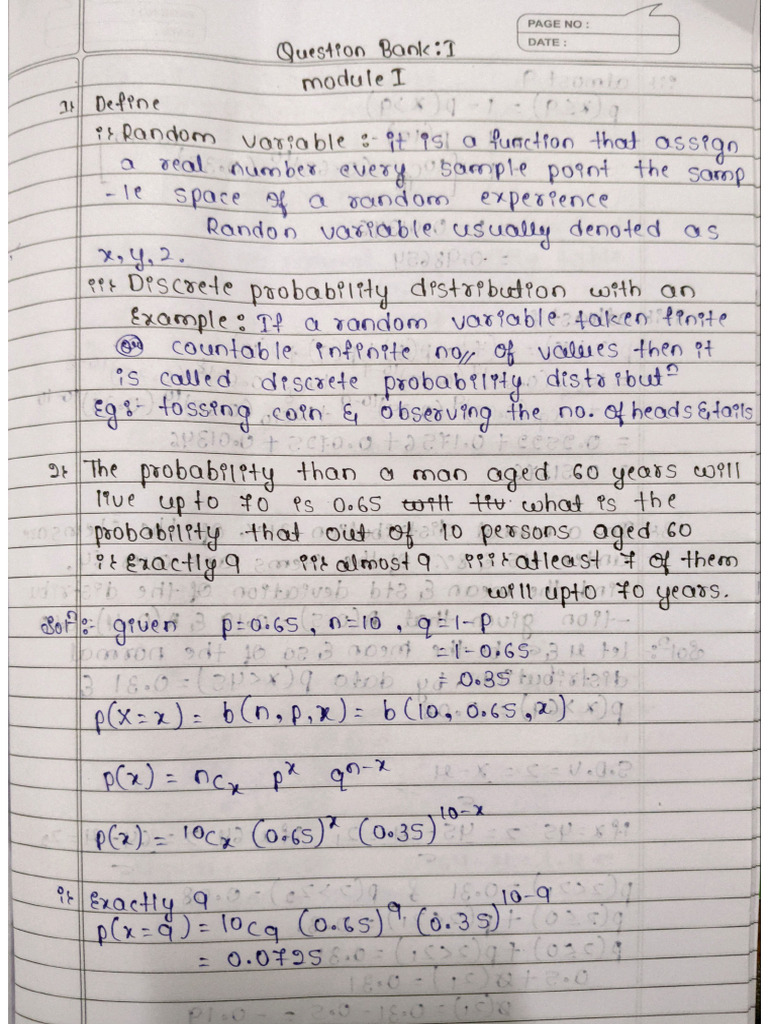 PAGE NO :
DATE :
Question Bank: I
module I
1) Define
i) Random variable :- it is a function that assign
a real number every sample point the samp
-le space of a random experience
Randon variable usually denoted as
x, y, z.
ii) Discrete probability distribution with an
Example: If a random variable taken finite
(or) countable infinite no// of values then it
is called discrete probability distributn
Eg :- tossing coin & observing the no. of heads & tails
2) The probability than a man aged 60 years will
live up to 70 is 0.65 will liv what is the
probability that out of 10 persons aged 60
i) Exactly 9 ii) almost 9 iii) atleast 7 of them
will upto 70 years.
Soln :- given p=0.65, n=10, q=1-p
=1-0.65
= 0.35
p(X=x) = b(n, p, x) = b(10, 0.65, x)
p(x) = nCx p^x q^n-x
p(x) = 10Cx (0.65)^x (0.35)^10-x
i) Exactly 9
p(x=9) = 10C9 (0.65)^9 (0.35)^10-9
= 0.0725